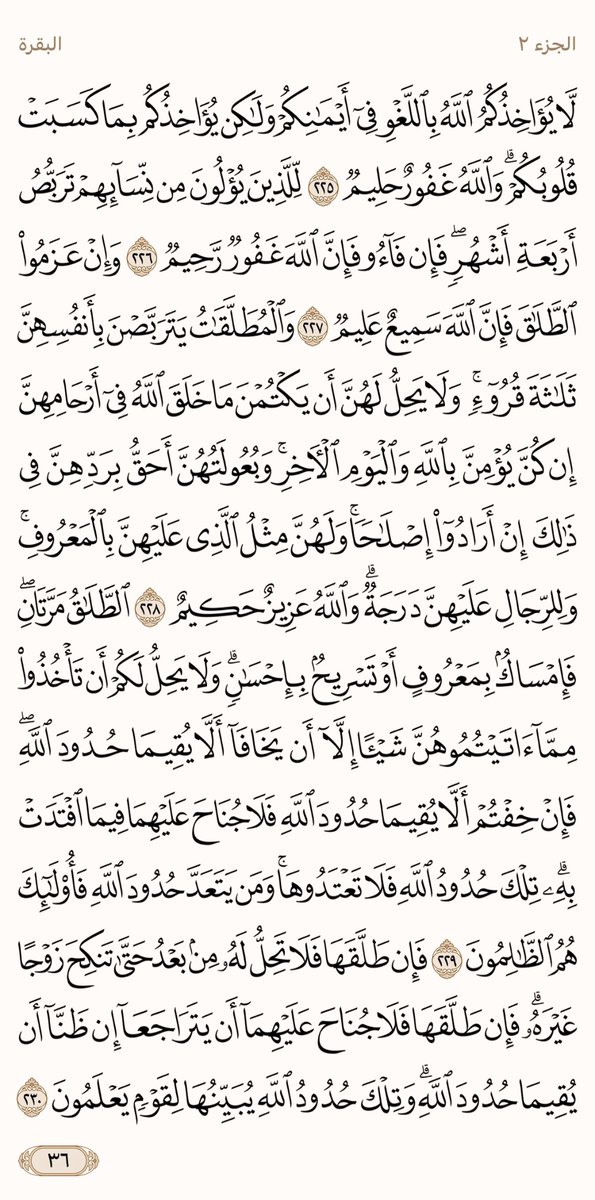 الجزء ٢
البقرة
لَّا يُؤَاخِذُكُمُ ٱللَّهُ بِٱللَّغْوِ فِىٓ أَيْمَٰنِكُمْ وَلَٰكِن يُؤَاخِذُكُم بِمَا كَسَبَتْ
قُلُوبُكُمْ ۗ وَٱللَّهُ غَفُورٌ حَلِيمٌ ٢٢٥ لِّلَّذِينَ يُؤْلُونَ مِن نِّسَآئِهِمْ تَرَبُّصُ
أَرْبَعَةِ أَشْهُرٍ ۖ فَإِن فَآءُو فَإِنَّ ٱللَّهَ غَفُورٌ رَّحِيمٌ ٢٢٦ وَإِنْ عَزَمُوا۟
ٱلطَّلَٰقَ فَإِنَّ ٱللَّهَ سَمِيعٌ عَلِيمٌ ٢٢٧ وَٱلْمُطَلَّقَٰتُ يَتَرَبَّصْنَ بِأَنفُسِهِنَّ
ثَلَٰثَةَ قُرُوٓءٍ ۚ وَلَا يَحِلُّ لَهُنَّ أَن يَكْتُمْنَ مَا خَلَقَ ٱللَّهُ فِىٓ أَرْحَامِهِنَّ
إِن كُنَّ يُؤْمِنَّ بِٱللَّهِ وَٱلْيَوْمِ ٱلْءَاخِرِ ۚ وَبُعُولَتُهُنَّ أَحَقُّ بِرَدِّهِنَّ فِى
ذَٰلِكَ إِنْ أَرَادُوٓا۟ إِصْلَٰحًا ۚ وَلَهُنَّ مِثْلُ ٱلَّذِى عَلَيْهِنَّ بِٱلْمَعْرُوفِ ۚ
وَلِلرِّجَالِ عَلَيْهِنَّ دَرَجَةٌ ۗ وَٱللَّهُ عَزِيزٌ حَكِيمٌ ٢٢٨ ٱلطَّلَٰقُ مَرَّتَانِ ۖ
فَإِمْسَاكٌۢ بِمَعْرُوفٍ أَوْ تَسْرِيحٌۢ بِإِحْسَٰنٍ ۗ وَلَا يَحِلُّ لَكُمْ أَن تَأْخُذُوا۟
مِمَّآ ءَاتَيْتُمُوهُنَّ شَيْـًٔا إِلَّآ أَن يَخَافَآ أَلَّا يُقِيمَا حُدُودَ ٱللَّهِ ۖ
فَإِنْ خِفْتُمْ أَلَّا يُقِيمَا حُدُودَ ٱللَّهِ فَلَا جُنَاحَ عَلَيْهِمَا فِيمَا ٱفْتَدَتْ
بِهِۦ ۗ تِلْكَ حُدُودُ ٱللَّهِ فَلَا تَعْتَدُوهَا ۚ وَمَن يَتَعَدَّ حُدُودَ ٱللَّهِ فَأُو۟لَٰٓئِكَ
هُمُ ٱلظَّٰلِمُونَ ٢٢٩ فَإِن طَلَّقَهَا فَلَا تَحِلُّ لَهُۥ مِنۢ بَعْدُ حَتَّىٰ تَنكِحَ زَوْجًا
غَيْرَهُۥ ۗ فَإِن طَلَّقَهَا فَلَا جُنَاحَ عَلَيْهِمَآ أَن يَتَرَاجَعَآ إِن ظَنَّآ أَن
يُقِيمَا حُدُودَ ٱللَّهِ ۗ وَتِلْكَ حُدُودُ ٱللَّهِ يُبَيِّنُهَا لِقَوْمٍ يَعْلَمُونَ ٢٣٠
٣٦